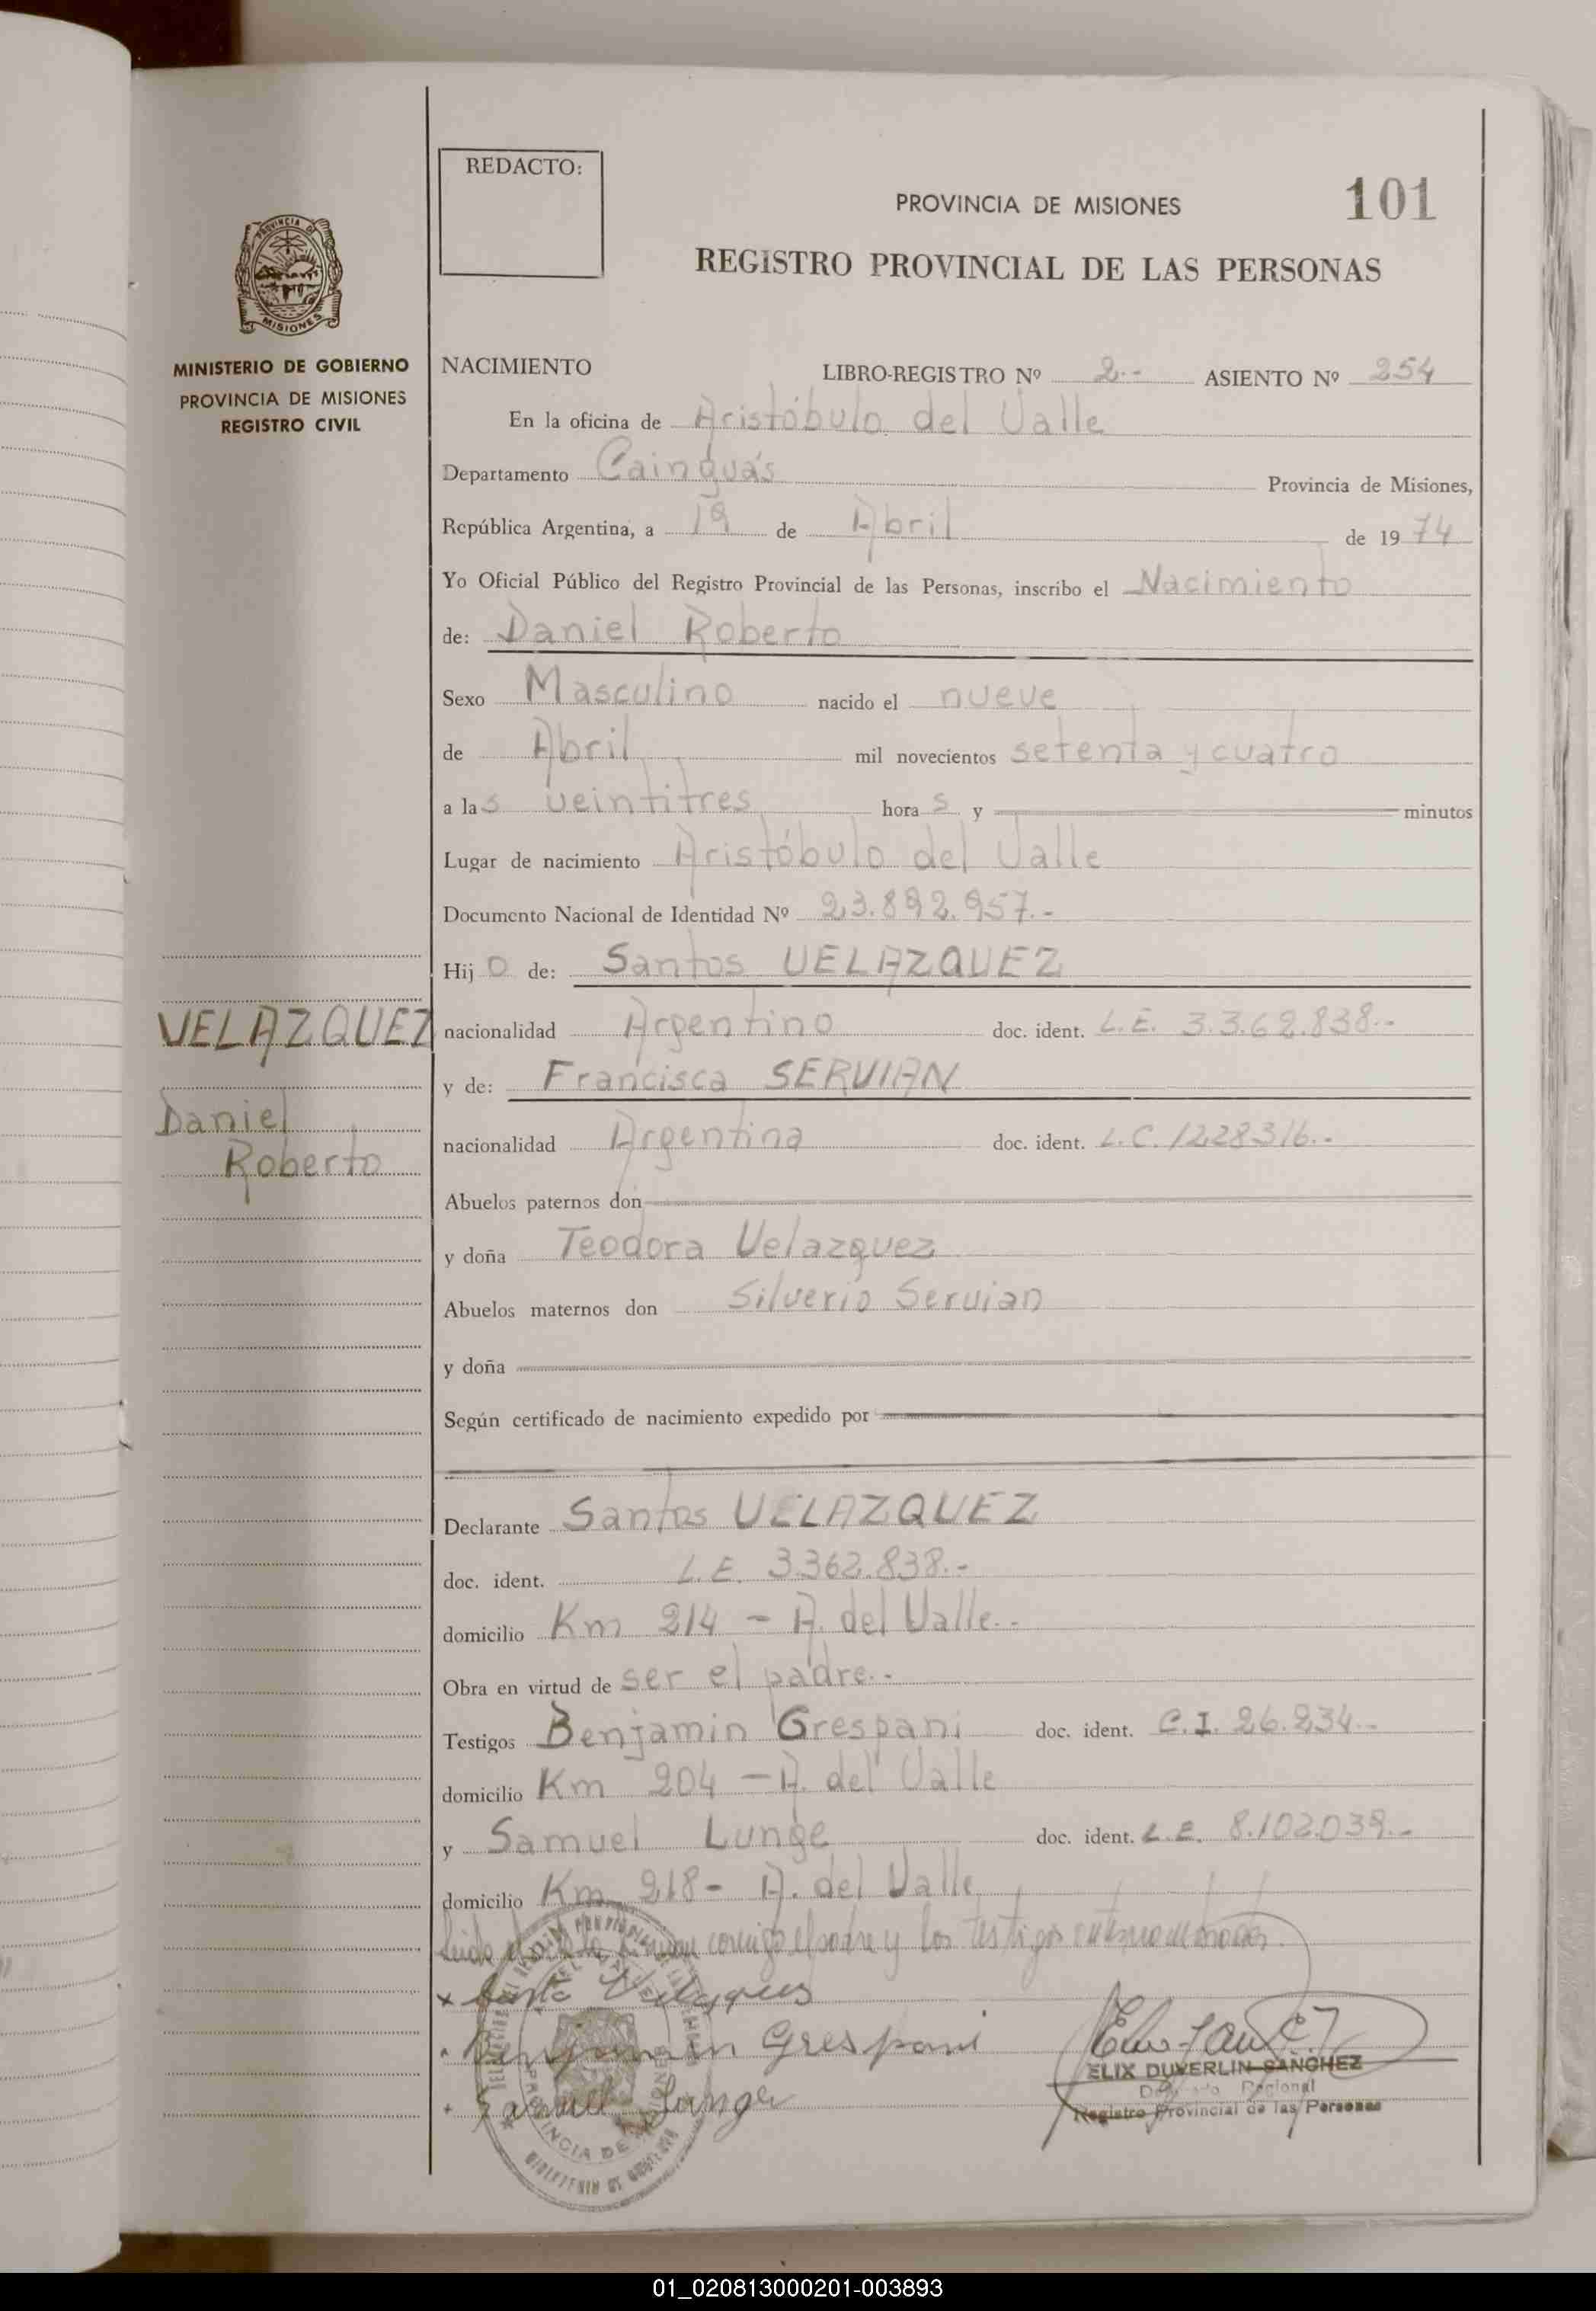 REDACTO:
PROVINCIA DE MISIONES
101
REGISTRO PROVINCIAL DE LAS PERSONAS
PROVINCIA DE
MISIONES
MINISTERIO DE GOBIERNO
PROVINCIA DE MISIONES
REGISTRO CIVIL
NACIMIENTO LIBRO-REGISTRO Nº 2.- ASIENTO Nº 254
En la oficina de Aristóbulo del Valle
Departamento Cainguás Provincia de Misiones,
República Argentina, a 19 de Abril de 1974
Yo Oficial Público del Registro Provincial de las Personas, inscribo el Nacimiento
de: Daniel Roberto
Sexo Masculino nacido el nueve
de Abril mil novecientos setenta y cuatro
a las veintitres horas y minutos
Lugar de nacimiento Aristóbulo del Valle
Documento Nacional de Identidad Nº 23.892.957.-
Hijo de: Santos VELAZQUEZ
VELAZQUEZ
nacionalidad Argentino doc. ident. L.E. 3.362.838.-
y de: Francisca SERVIAN
Daniel
Roberto
nacionalidad Argentina doc. ident. L.C. 1228316.-
Abuelos paternos don
y doña Teodora Velazquez
Abuelos maternos don Silverio Servian
y doña
Según certificado de nacimiento expedido por
Declarante Santos VELAZQUEZ
doc. ident. L.E. 3362.838.-
domicilio Km 214 - A. del Valle.-
Obra en virtud de ser el padre.-
Testigos Benjamin Grespani doc. ident. C.I. 26.234.-
domicilio Km 204 - A. del Valle
y Samuel Lunge doc. ident. L.E. 8.102.039.-
domicilio Km 218- A. del Valle
conmigo el padre y los testigos
x Velazques
Benjamin Grespani
Samuel Lunge
ELIX DUVERLIN SANCHEZ
Regional
Registro Provincial de las Personas
01_020813000201-003893